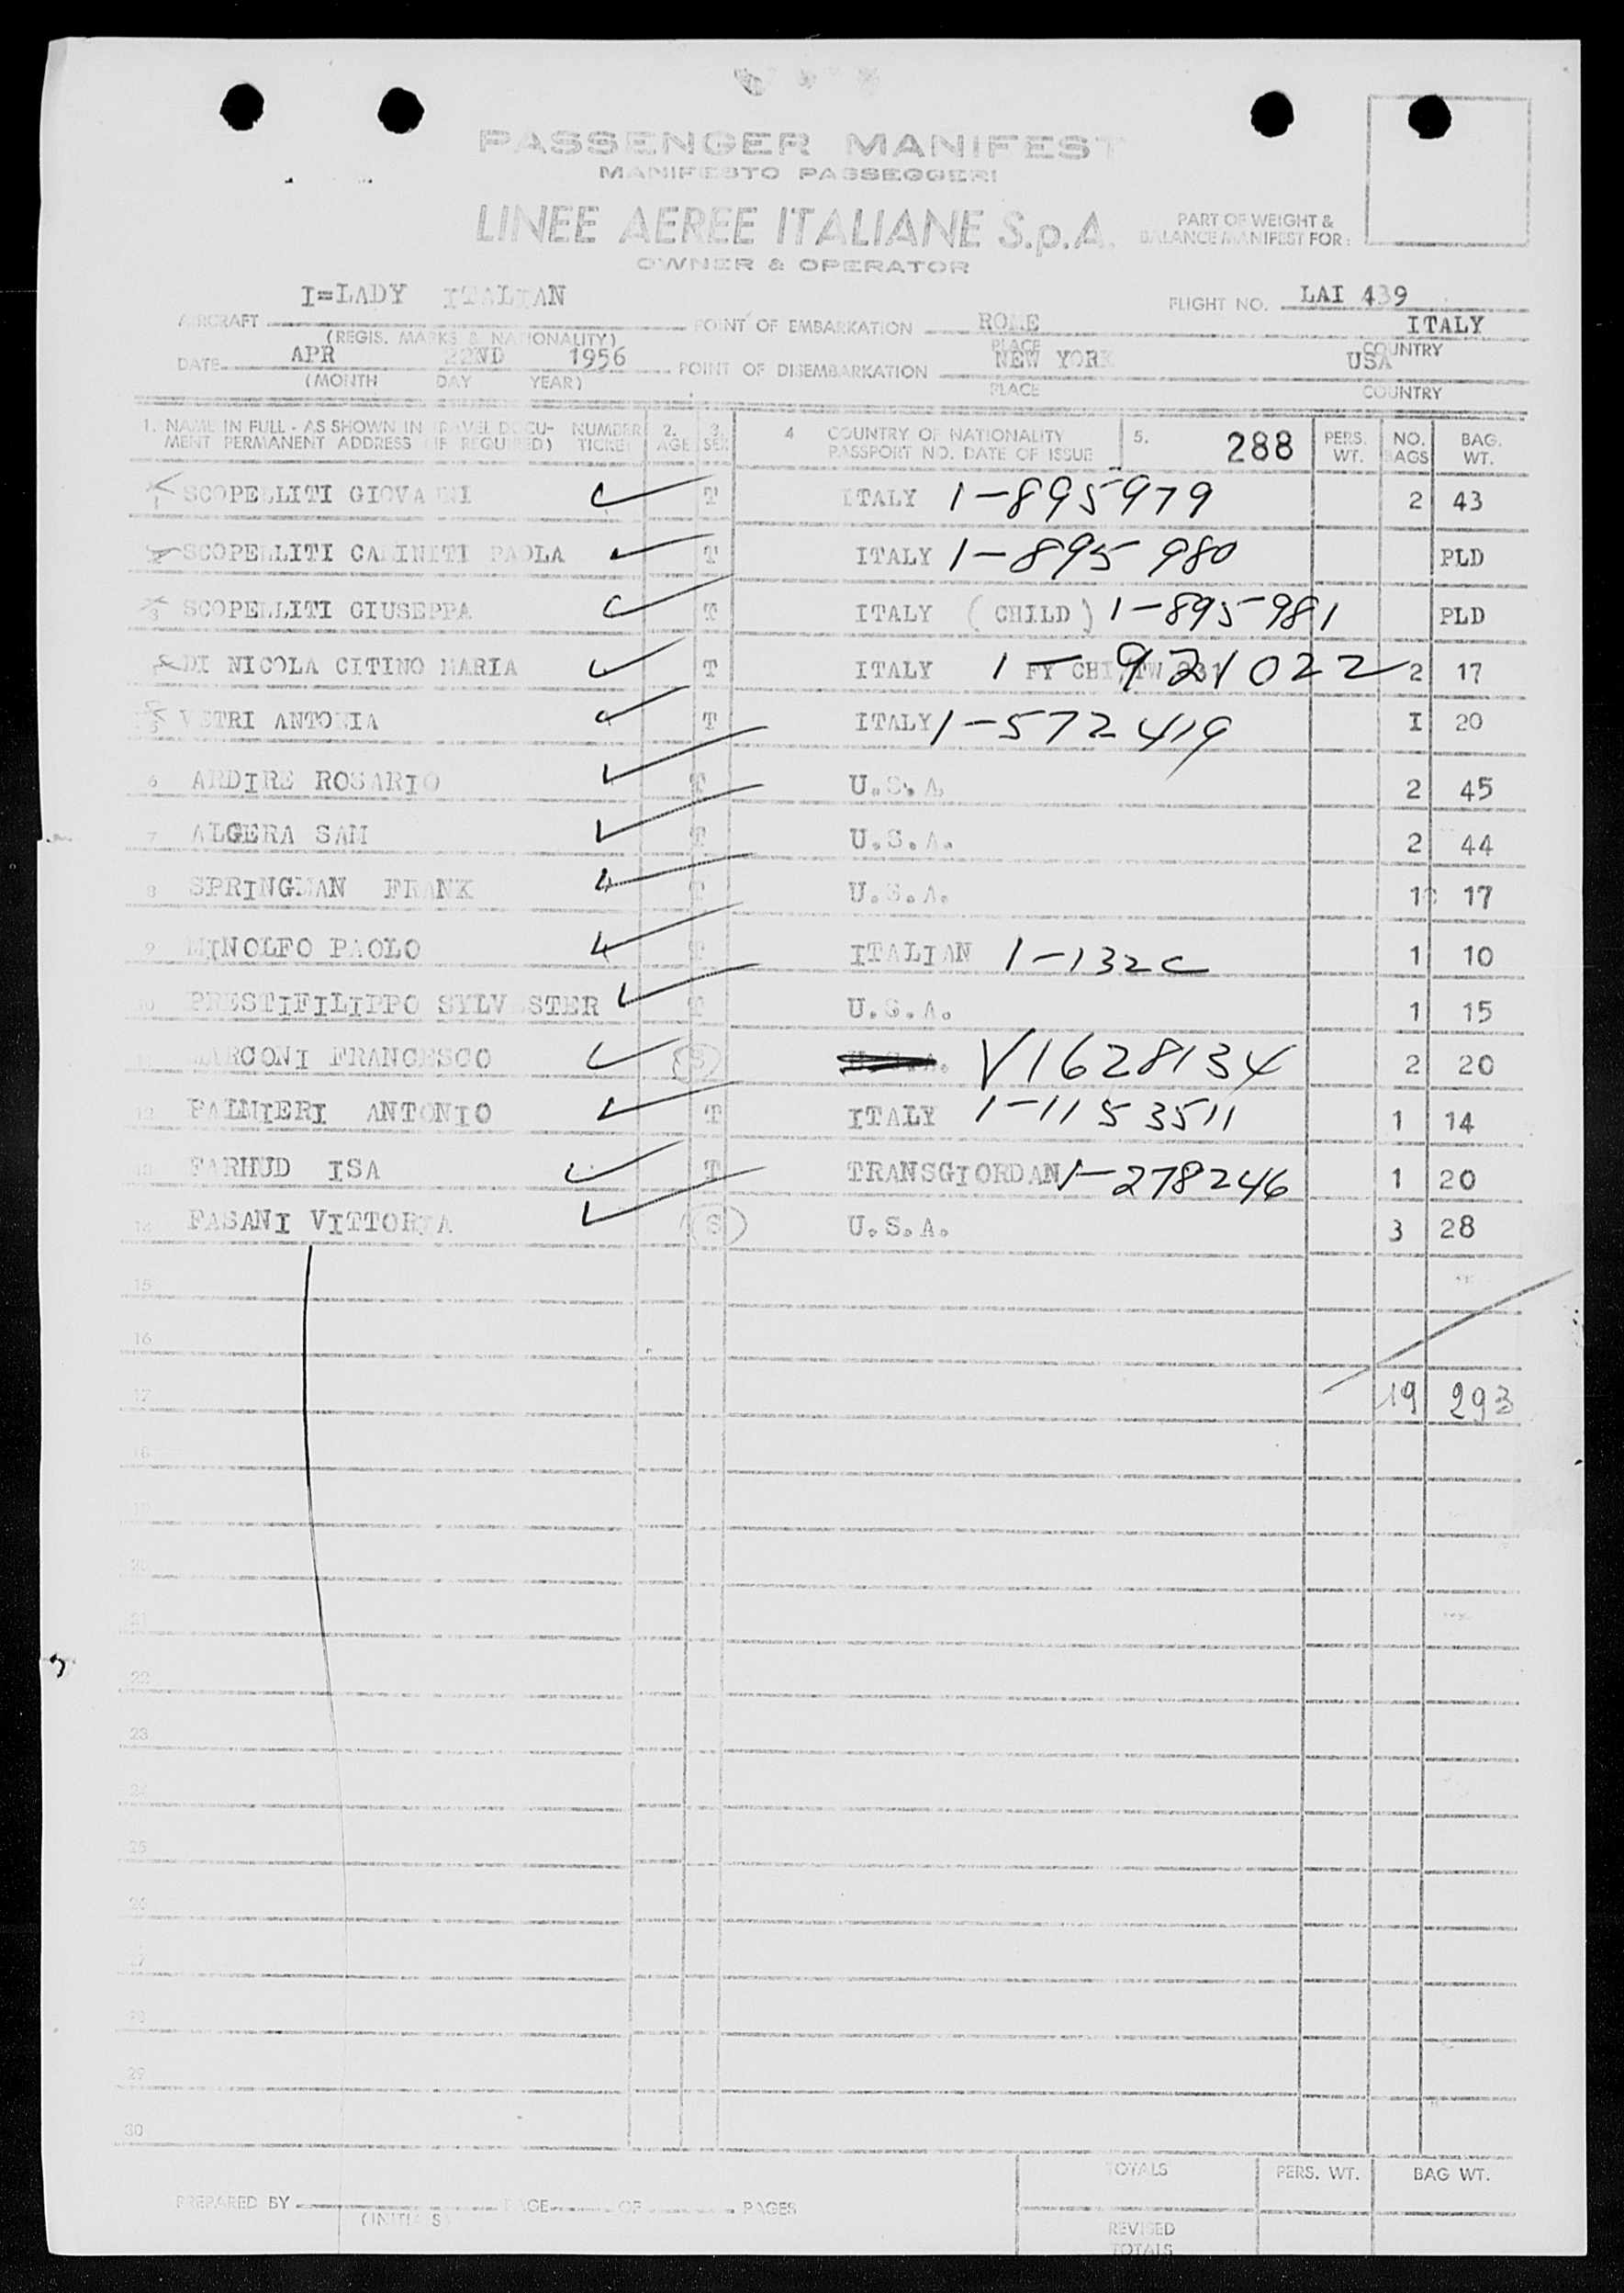 PASSENGER MANIFEST
MANIFESTO PASSEGGERI
LINEE AEREE ITALIANE S.p.A.
OWNER & OPERATOR
PART OF WEIGHT &
BALANCE MANIFEST FOR:
AIRCRAFT I=LADY ITALIAN
(REGIS. MARKS & NATIONALITY)
FLIGHT NO. LAI 439
POINT OF EMBARKATION ROME ITALY
PLACE COUNTRY
DATE APR 22ND 1956
(MONTH DAY YEAR)
POINT OF DISEMBARKATION NEW YORK USA
PLACE COUNTRY
1. NAME IN FULL - AS SHOWN IN TRAVEL DOCU- NUMBER 2. 3. 4 COUNTRY OF NATIONALITY 5. 288 PERS. NO. BAG.
MENT PERMANENT ADDRESS (IF REQUIRED) TICKET AGE SEX PASSPORT NO. DATE OF ISSUE WT. BAGS WT.
1 SCOPELLITI GIOVANNI T ITALY 1-895979 2 43
SCOPELLITI CAMINITI PAOLA T ITALY 1-895980 PLD
3 SCOPELLITI GIUSEPPA T ITALY (CHILD) 1-895981 PLD
DI NICOLA CITINO MARIA T ITALY 1-921022 2 17
5 VETRI ANTONIA T ITALY 1-572419 I 20
6 ARDIRE ROSARIO T U.S.A. 2 45
7 ALGERA SAM T U.S.A. 2 44
8 SPRINGMAN FRANK T U.S.A. 1 17
9 MINOLFO PAOLO T ITALIAN 1-132C 1 10
10 PRESTIFILIPPO SYLVESTER T U.S.A. 1 15
11 MARCONI FRANCESCO S V1628134 2 20
12 PALMIERI ANTONIO T ITALY 1-1153511 1 14
13 FARHUD ISA T TRANSGIORDAN 1-278246 1 20
14 FASANI VITTORIA S U.S.A. 3 28
15
16
17 19 293
18
19
20
21
22
23
24
25
26
27
28
29
30
TOTALS PERS. WT. BAG WT.
PREPARED BY PAGE OF PAGES
(INITIALS)
REVISED
TOTALS